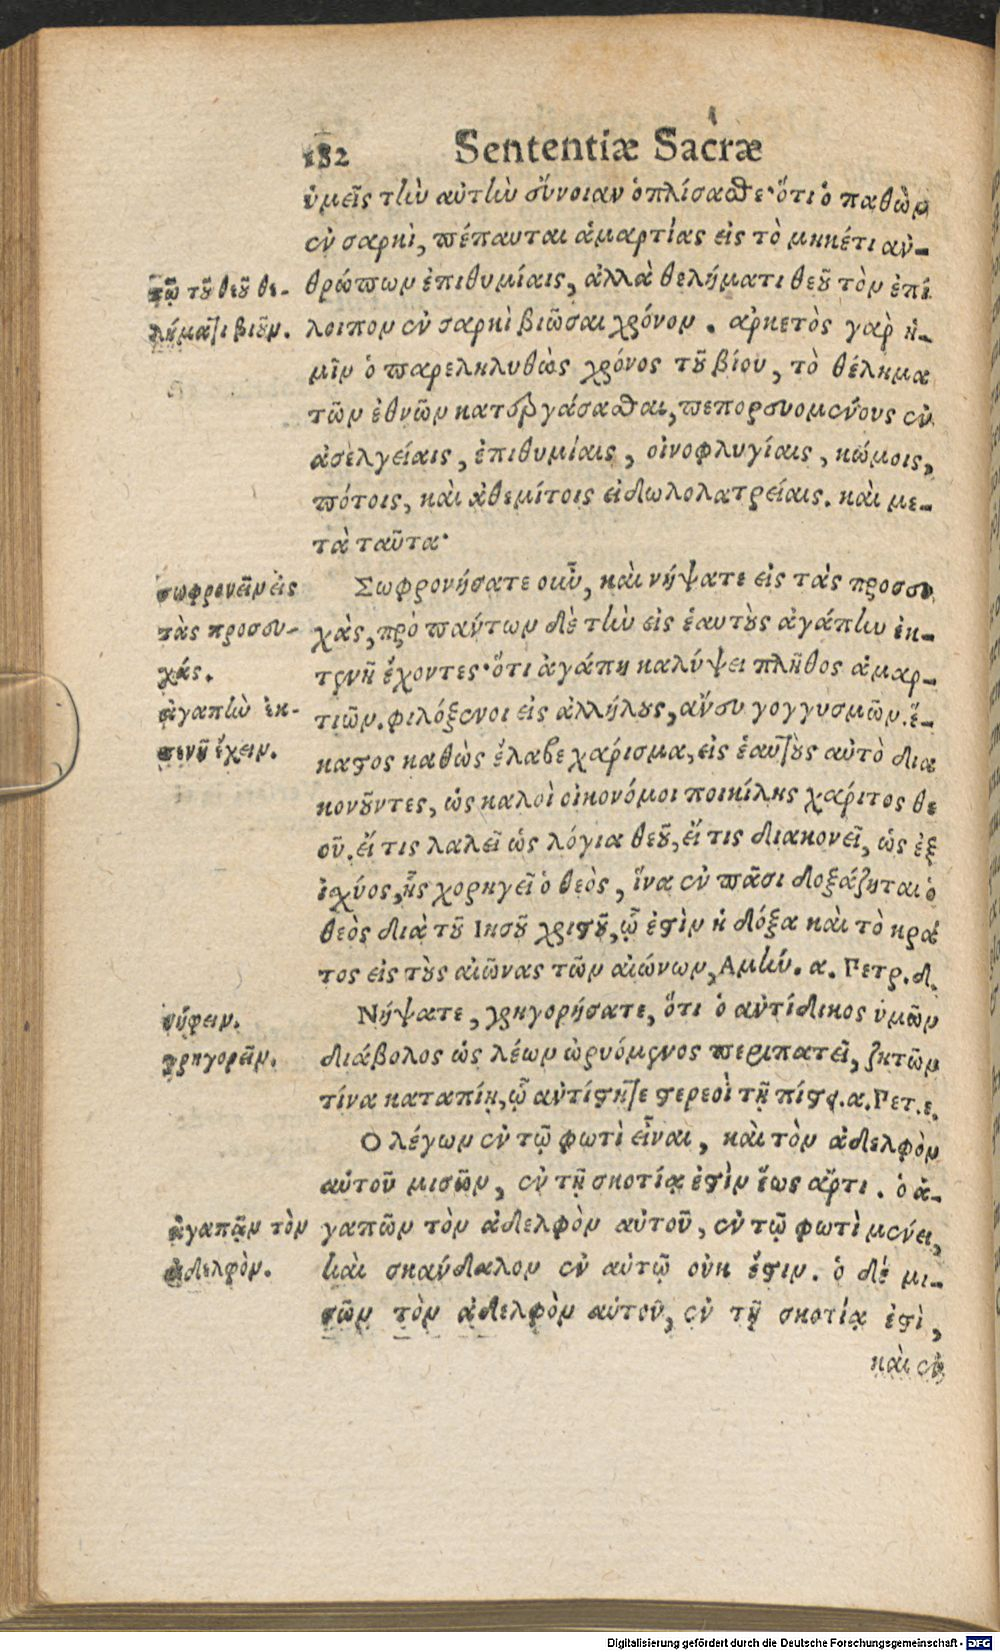 182 Sententiæ Sacræ
ὑμεῖς τὴν αὐτὴν ἔννοιαν ὁπλίσασθε· ὅτι ὁ παθὼν
ἐν σαρκὶ, πέπαυται ἁμαρτίας εἰς τὸ μηκέτι ἀν-
τῷ τοῦ θεοῦ θε-
θρώπων ἐπιθυμίαις, ἀλλὰ θελήματι θεοῦ τὸν ἐπί
λήματι βιοῦν.
λοιπον ἐν σαρκὶ βιῶσαι χρόνον. ἀρκετὸς γαρ ἡ-
μῖν ὁ παρεληλυθὼς χρόνος τοῦ βίου, τὸ θέλημα
τῶν ἐθνῶν κατεργάσασθαι, πεπορευομένους ἐν
ἀσελγείαις, ἐπιθυμίαις, οἰνοφλυγίαις, κώμοις,
πότοις, καὶ ἀθεμίτοις εἰδωλολατρείαις. καὶ με-
τὰ ταῦτα·
σωφρονεῖν εἰς
Σωφρονήσατε οὖν, καὶ νήψατε εἰς τὰς προσευ
τὰς προσευ-
χὰς, πρὸ πάντων δὲ τὴν εἰς ἑαυτοὺς ἀγάπην ἐκ-
χάς.
τενῆ ἔχοντες· ὅτι ἀγάπη καλύψει πλῆθος ἁμαρ-
ἀγαπὴν ἐκ-
τιῶν. φιλόξενοι εἰς ἀλλήλους, ἄνευ γογγυσμῶν. ἕ-
τενῆ ἔχειν.
καστος καθὼς ἔλαβε χάρισμα, εἰς ἑαυτοὺς αὐτὸ δια
κονοῦντες, ὡς καλοὶ οἰκονόμοι ποικίλης χάριτος θε
οῦ. εἴ τις λαλεῖ ὡς λόγια θεοῦ, εἴ τις διακονεῖ, ὡς ἐξ
ἰσχύος, ἧς χορηγεῖ ὁ θεὸς, ἵνα ἐν πᾶσι δοξάζηται ὁ
θεὸς διὰ τοῦ Ιησοῦ χριστοῦ, ᾧ ἐστὶν ἡ δόξα καὶ τὸ κρά
τος εἰς τοὺς αἰῶνας τῶν αἰώνων, Αμήν. α. Πετρ. δ.
νήφειν.
Νήψατε, γρηγορήσατε, ὅτι ὁ ἀντίδικος ὑμῶν
γρηγορεῖν.
διάβολος ὡς λέων ὠρυόμενος περιπατεῖ, ζητῶν
τίνα καταπίῃ, ᾧ ἀντίστητε στερεοὶ τῇ πίστει. α. Πετ. ε.
Ο λέγων ἐν τῷ φωτὶ εἶναι, καὶ τὸν ἀδελφὸν
αὐτοῦ μισῶν, ἐν τῇ σκοτίᾳ ἐστὶν ἕως ἄρτι. ὁ ἀ-
ἀγαπᾷν τὸν
γαπῶν τὸν ἀδελφὸν αὐτοῦ, ἐν τῷ φωτὶ μένει,
ἀδελφὸν.
καὶ σκάνδαλον ἐν αὐτῷ οὐκ ἔστιν. ὁ δὲ μι-
σῶν τὸν ἀδελφὸν αὐτοῦ, ἐν τῇ σκοτίᾳ ἐστὶ,
καὶ ἐν
Digitalisierung gefördert durch die Deutsche Forschungsgemeinschaft - DFG